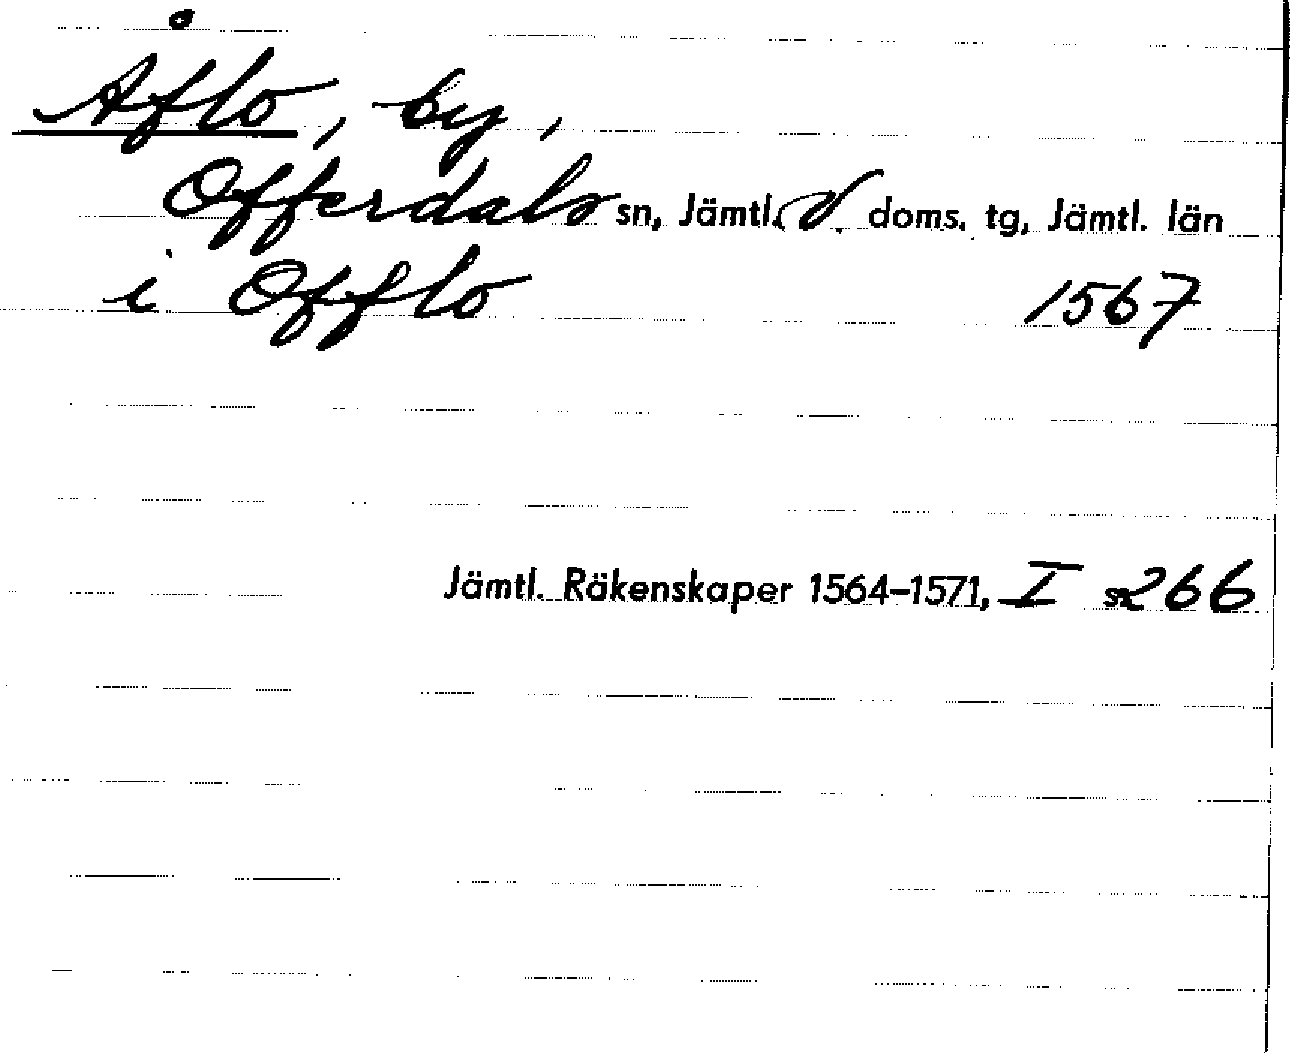 Åflo, by,
Offerdals sn, Jämtl. V. doms. tg, Jämtl. län
i Offlo 1567
Jämtl. Räkenskaper 1564–1571, I s. 266